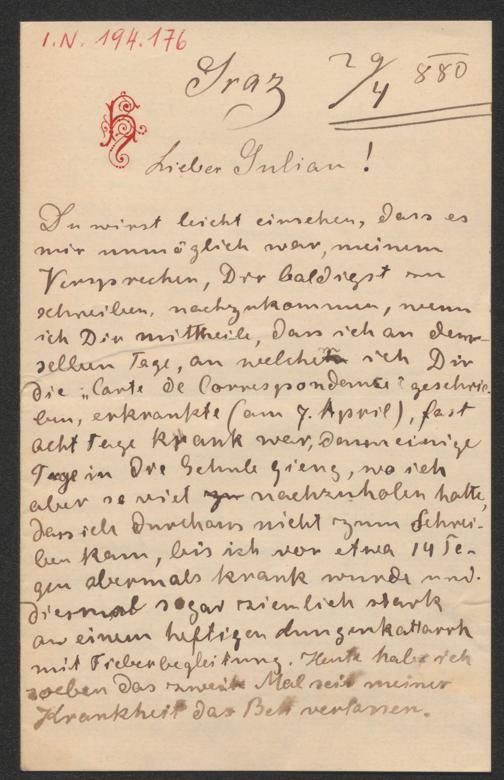 I.N. 194.176
Graz 29/4 880
H
Lieber Julian!
Du wirst leicht einsehen, dass es
mir unmöglich war, meinem
Versprechen, Dir baldigst zu
schreiben, nachzukommen, wenn
ich Dir mittheile, dass ich an dem-
selben Tage, an welchem ich Dir
die „Carte de Correspondance" geschrie-
ben, erkrankte (am 7. April), fast
acht Tage krank war, dann einige
Tage in die Schule gieng, wo ich
aber so viel nachzuholen hatte,
dass ich durchaus nicht zum Schrei-
ben kam, bis ich vor etwa 14 Ta-
gen abermals krank wurde und
diesmal sogar ziemlich stark
an einem heftigen Lungenkatarrh
mit Fieberbegleitung. Heute habe ich
soeben das zweite Mal seit meiner
Krankheit das Bett verlassen.